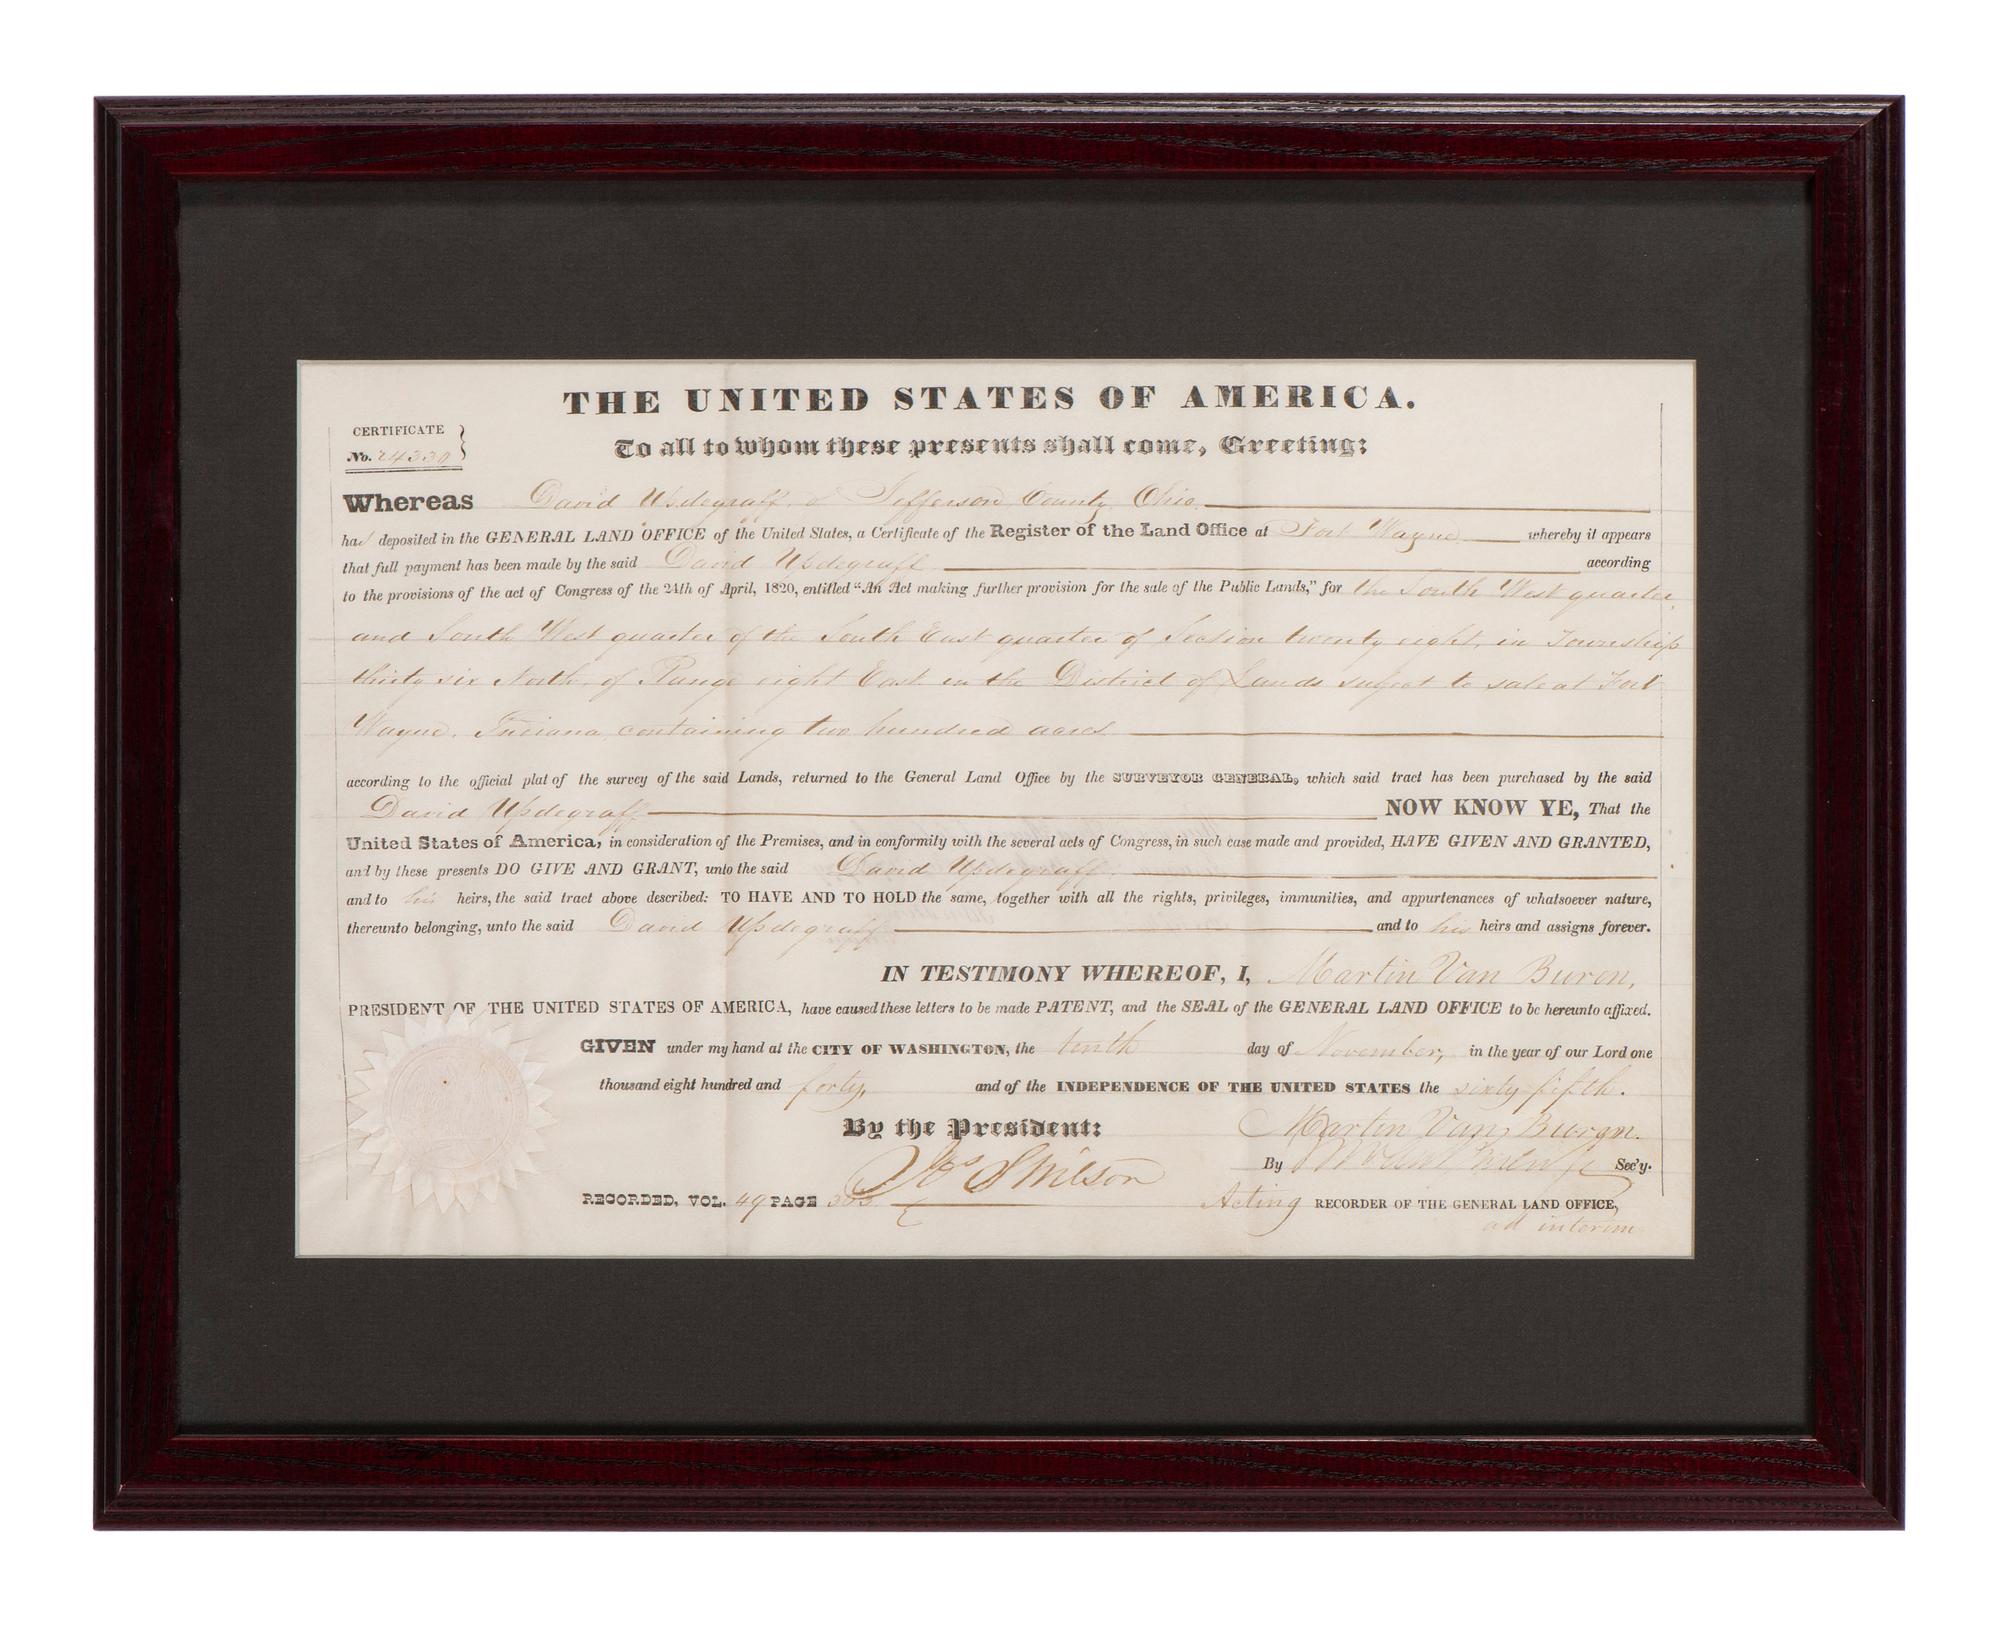 THE UNITED STATES OF AMERICA.
CERTIFICATE
No. 24330
To all to whom these presents shall come, Greeting:
Whereas David Updegraff, of Jefferson County, Ohio,
has deposited in the GENERAL LAND OFFICE of the United States, a Certificate of the Register of the Land Office at Fort Wayne whereby it appears
that full payment has been made by the said David Updegraff according
to the provisions of the act of Congress of the 24th of April, 1820, entitled "An Act making further provision for the sale of the Public Lands," for the South West quarter,
and South West quarter of the South East quarter of Section twenty eight, in Township
thirty six North, of Range eight East in the District of Lands subject to sale at Fort
Wayne, Indiana, containing two hundred acres
according to the official plat of the survey of the said Lands, returned to the General Land Office by the SURVEYOR GENERAL, which said tract has been purchased by the said
David Updegraff NOW KNOW YE, That the
United States of America, in consideration of the Premises, and in conformity with the several acts of Congress, in such case made and provided, HAVE GIVEN AND GRANTED,
and by these presents DO GIVE AND GRANT, unto the said David Updegraff,
and to his heirs, the said tract above described: TO HAVE AND TO HOLD the same, together with all the rights, privileges, immunities, and appurtenances of whatsoever nature,
thereunto belonging, unto the said David Updegraff and to his heirs and assigns forever.
IN TESTIMONY WHEREOF, I, Martin Van Buren,
PRESIDENT OF THE UNITED STATES OF AMERICA, have caused these letters to be made PATENT, and the SEAL of the GENERAL LAND OFFICE to be hereunto affixed.
GIVEN under my hand at the CITY OF WASHINGTON, the tenth day of November, in the year of our Lord one
thousand eight hundred and forty, and of the INDEPENDENCE OF THE UNITED STATES the sixty fifth.
By the President: Martin Van Buren.
By Sec'y.
Jos S Wilson
RECORDED, VOL. 49 PAGE Acting RECORDER OF THE GENERAL LAND OFFICE,
ad interim